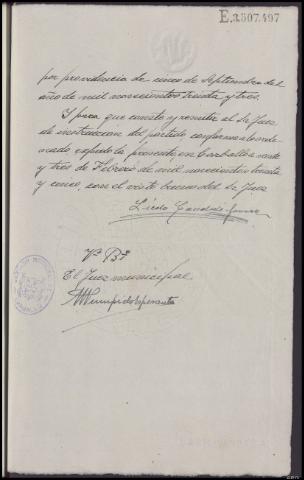 E.3.507.497
por providencia de cinco de Septiembre del
año de mil novecientos treinta y tres.
Y para que conste y remitir al Sr. Juez
de instruccion del partido conforme a lo orde-
nado expido la presente en Carballo a veinte
y tres de Febrero de mil novecientos treinta
y cinco, con el visto bueno del Sr Juez
Vº Bº
El Juez municipal